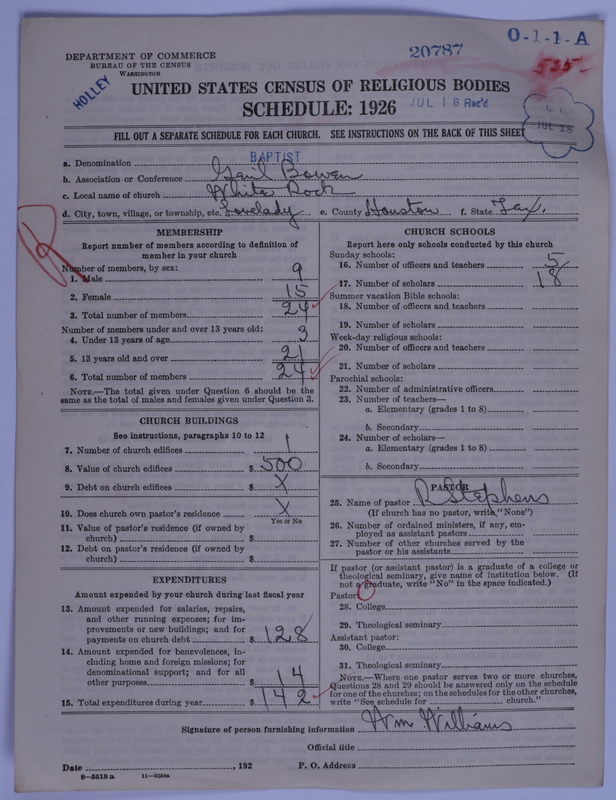 20787
O-1-1-A
525-
DEPARTMENT OF COMMERCE
BUREAU OF THE CENSUS
WASHINGTON
HOLLEY
UNITED STATES CENSUS OF RELIGIOUS BODIES
SCHEDULE: 1926
JUL 18 Rec'd
JUL 18
FILL OUT A SEPARATE SCHEDULE FOR EACH CHURCH. SEE INSTRUCTIONS ON THE BACK OF THIS SHEET
BAPTIST
a. Denomination
b. Association or Conference Gail Bowen
c. Local name of church White Rock
d. City, town, village, or township, etc. Lovelady e. County Houston f. State Tex.
R
MEMBERSHIP
Report number of members according to definition of
member in your church
Number of members, by sex:
1. Male 9
2. Female 15
3. Total number of members 24
Number of members under and over 13 years old:
4. Under 13 years of age 3
5. 13 years old and over 21
6. Total number of members 24
NOTE.—The total given under Question 6 should be the
same as the total of males and females given under Question 3.
CHURCH BUILDINGS
See instructions, paragraphs 10 to 12
7. Number of church edifices 1
8. Value of church edifices $ 500
9. Debt on church edifices $ X
10. Does church own pastor's residence X
Yes or No
11. Value of pastor's residence (if owned by
church) $
12. Debt on pastor's residence (if owned by
church) $
EXPENDITURES
Amount expended by your church during last fiscal year
13. Amount expended for salaries, repairs,
and other running expenses; for im-
provements or new buildings; and for
payments on church debt $ 128
14. Amount expended for benevolences, in-
cluding home and foreign missions; for
denominational support; and for all
other purposes $ 14
15. Total expenditures during year $ 142
CHURCH SCHOOLS
Report here only schools conducted by this church
Sunday schools:
16. Number of officers and teachers 5
17. Number of scholars 18
Summer vacation Bible schools:
18. Number of officers and teachers
19. Number of scholars
Week-day religious schools:
20. Number of officers and teachers
21. Number of scholars
Parochial schools:
22. Number of administrative officers
23. Number of teachers—
a. Elementary (grades 1 to 8)
b. Secondary
24. Number of scholars—
a. Elementary (grades 1 to 8)
b. Secondary
PASTOR
25. Name of pastor R Stephens
(If church has no pastor, write "None")
26. Number of ordained ministers, if any, em-
ployed as assistant pastors
27. Number of other churches served by the
pastor or his assistants
If pastor (or assistant pastor) is a graduate of a college or
theological seminary, give name of institution below. (If
not a graduate, write "No" in the space indicated.)
Pastor:
28. College
29. Theological seminary
Assistant pastor:
30. College
31. Theological seminary
NOTE.—Where one pastor serves two or more churches,
Questions 28 and 29 should be answered only on the schedule
for one of the churches; on the schedules for the other churches,
write "See schedule for church."
Signature of person furnishing information Wm Williams
Official title
Date , 192 P. O. Address
8-5518 a 11-9254a